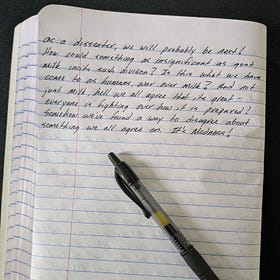 as a dissenter, we will probably be next!
How could something as insignificant as goat
milk incite such division? Is this what we have
come to as humans, war over milk? And not
just milk, hell we all agree that its great -
everyone is fighting over how it is prepared!
Somehow we've found a way to disagree about
something we all agree on. It's Madness!